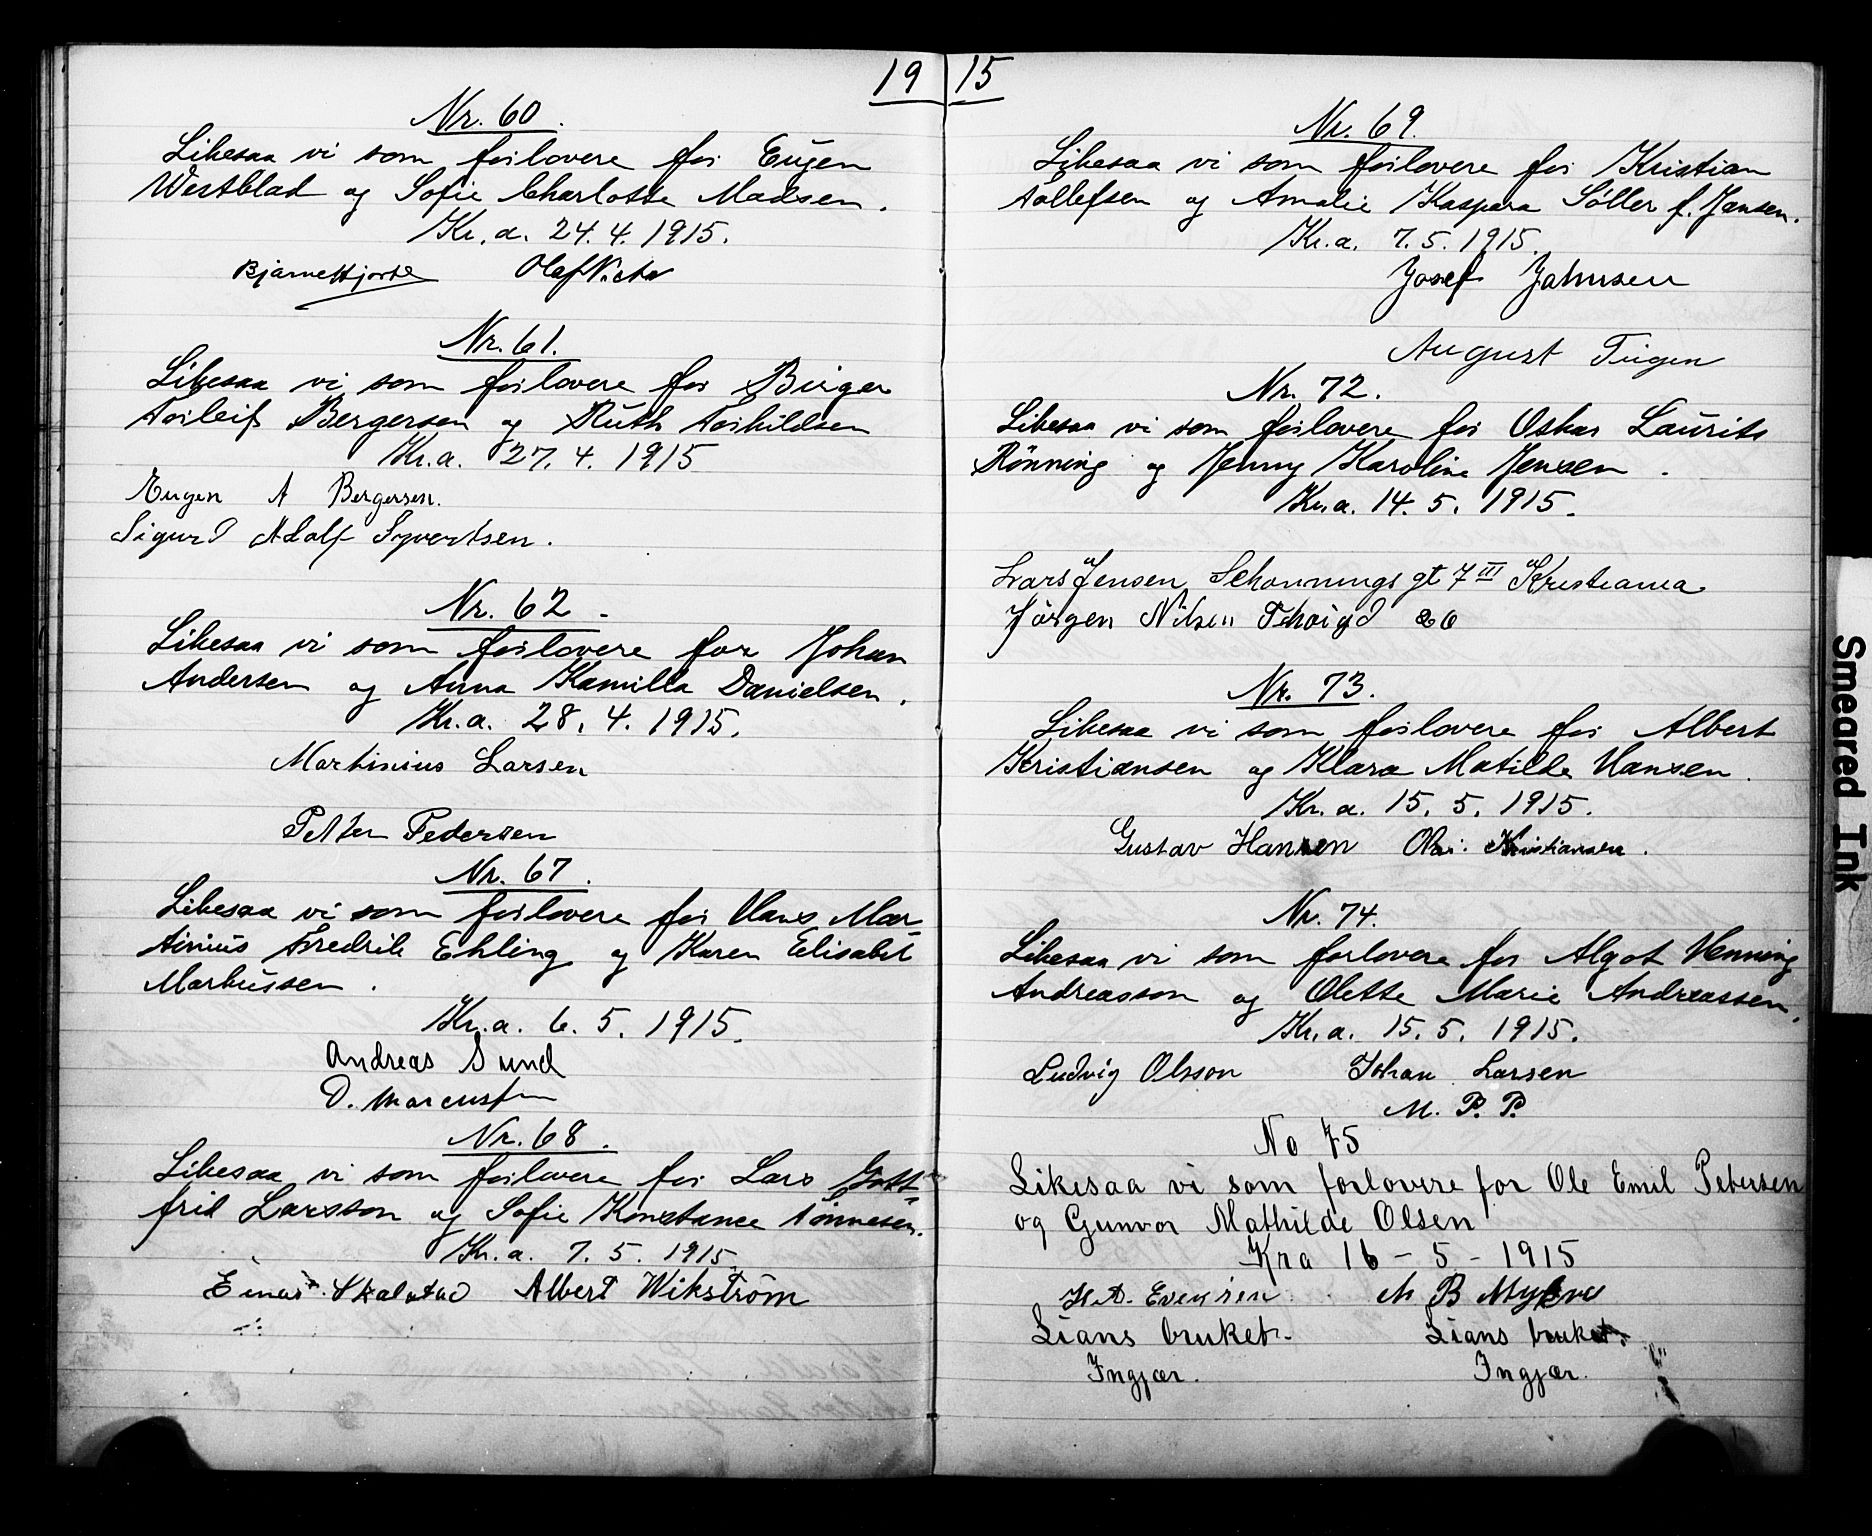 1915
Nr. 60.
Likesaa vi som forlovere for Eugen
Westblad og Sofie Charlotte Madsen.
Kr.a. 24.4.1915.
Bjarne Hjorth Olaf
Nr. 61.
Likesaa vi som forlovere for Birger
Torleif Bergersen og Ruth Torkildsen
Kr.a. 27.4.1915
Eugen A Bergersen.
Sigurd Adolf Syvertsen.
Nr. 62.
Likesaa vi som forlovere for Johan
Andersen og Anna Kamilla Danielsen.
Kr.a. 28.4.1915.
Martinius Larsen
Petter Pedersen
Nr. 67.
Likesaa vi som forlovere for Hans Mar-
tinius Fredrik Ehling og Karen Elisabet
Markussen.
Kr.a. 6.5.1915.
Andreas Sund
D. Marcussen
Nr. 68.
Likesaa vi som forlovere for Lars Gott-
frid Larsson og Sofie Konstance Tönnesen.
Kr.a. 7.5.1915.
Einar Skalstad Albert Wikström
Nr. 69.
Likesaa vi som forlovere for Kristian
Tollefsen og Amalie Kaspara Söller f. Jansen.
Kr.a. 7.5.1915.
Josef Jahnsen
August
Nr. 72.
Likesaa vi som forlovere for Oskar Laurits
Rönning og Jenny Karoline Jensen.
Kr.a. 14.5.1915.
Lars Jensen Schonnings gt 7 III Kristiania
Jörgen Nilsen 26
Nr. 73.
Likesaa vi som forlovere for Albert
Kristiansen og Klara Matilde Hansen.
Kr.a. 15.5.1915.
Gustav Hansen Kristiansen.
Nr. 74.
Likesaa vi som forlovere for Algot Henning
Andreasson og Olette Marie Andreassen.
Kr.a. 15.5.1915.
Ludvig Olsson Johan Larsen
M. P. P.
No 75
Likesaa vi som forlovere for Ole Emil Petersen
og Gunvor Mathilde Olsen
Kra 16-5-1915
H.A. Evensen M B
Lians bruket. Lians bruket.
Ingjær. Ingjær.
Smeared Ink